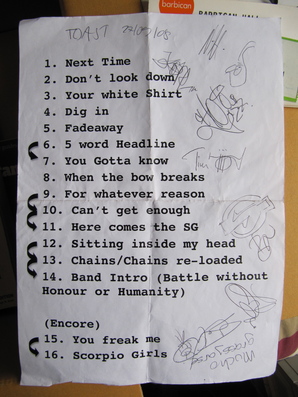 barbican
BARBICAN HALL
TOAST 27/09/08
1. Next Time
2. Don't look down
3. Your white Shirt
4. Dig in
5. Fadeaway
6. 5 word Headline
7. You Gotta know
8. When the bow breaks
9. For whatever reason
10. Can't get enough
11. Here comes the SG
12. Sitting inside my head
13. Chains/Chains re-loaded
14. Band Intro (Battle without
Honour or Humanity)
(Encore)
15. You freak me
16. Scorpio Girls
Mucho